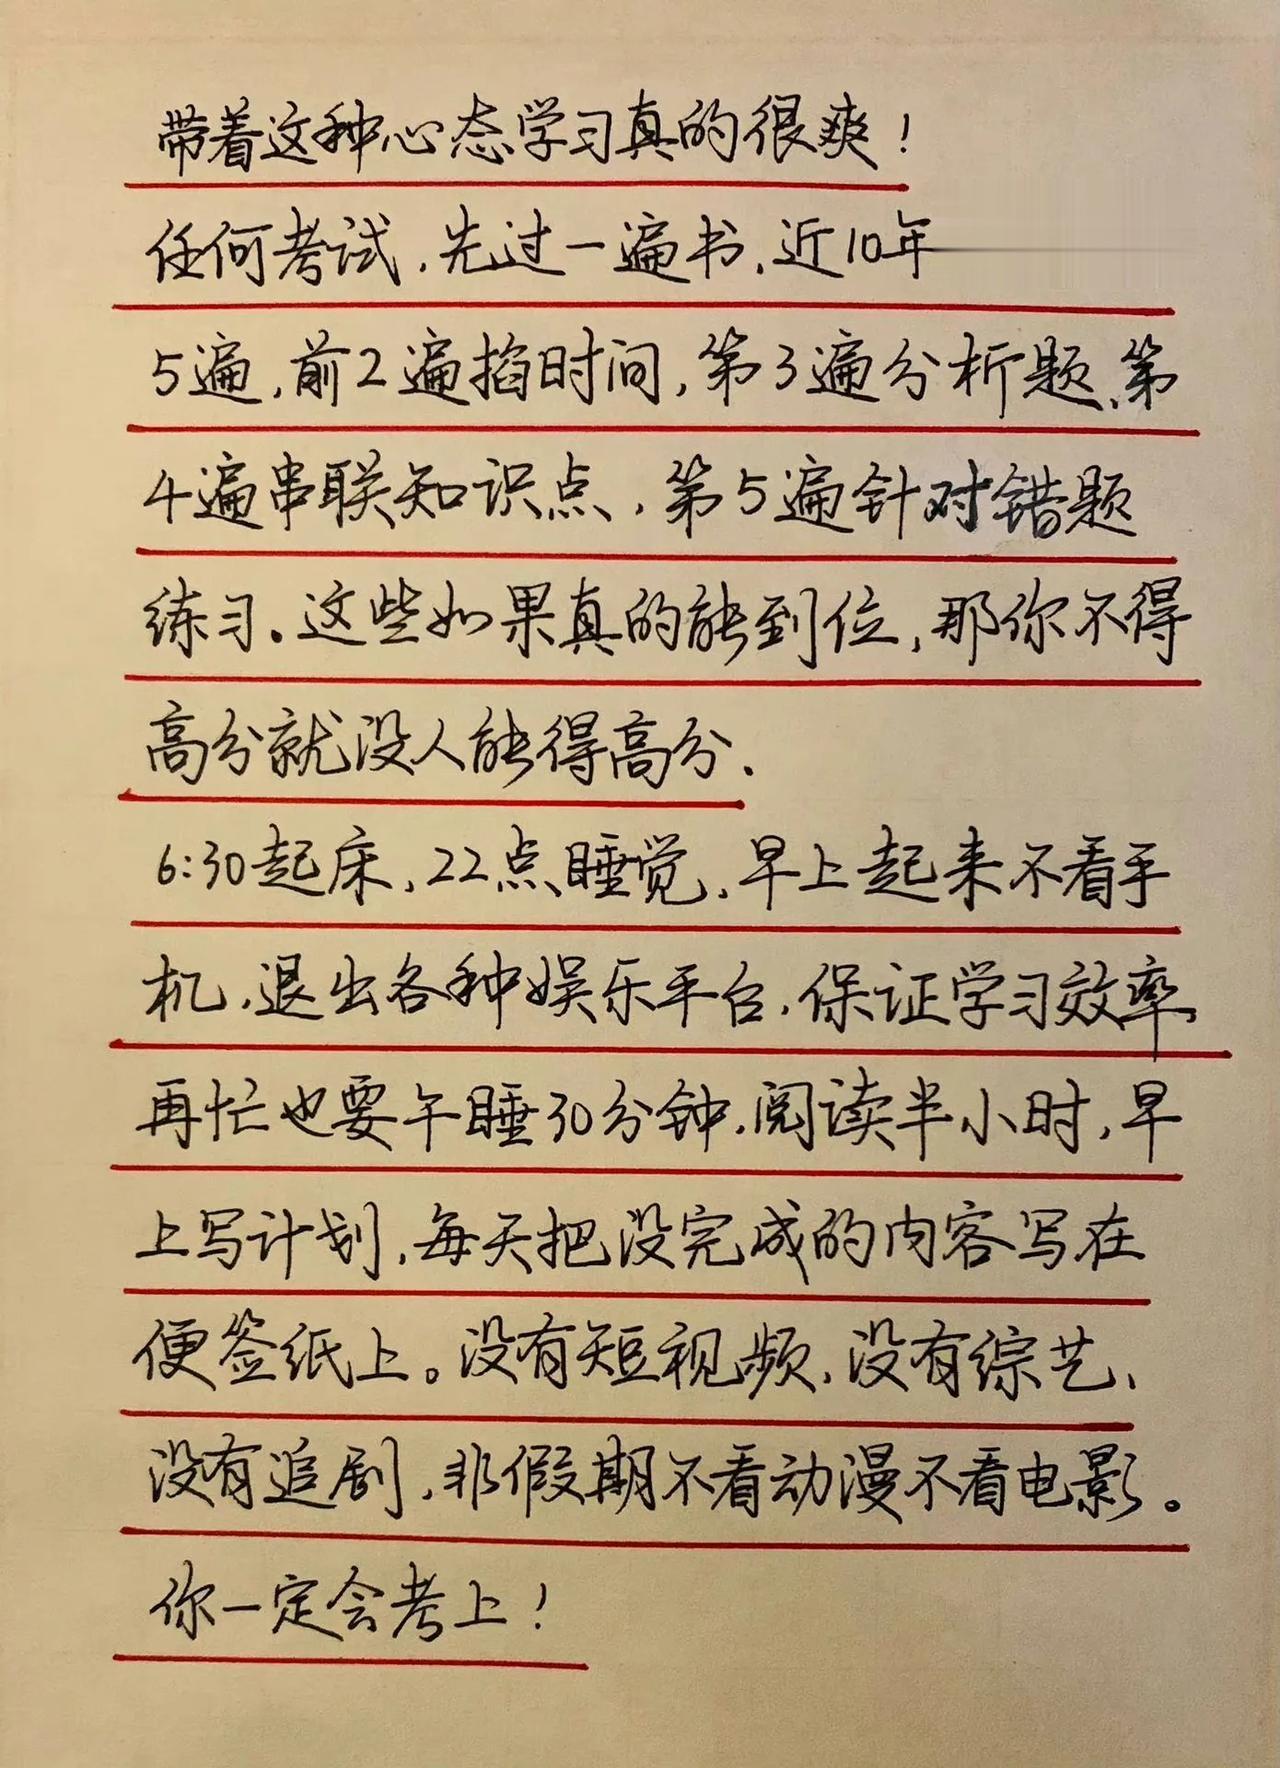 带着这种心态学习真的很爽！
任何考试，先过一遍书，近10年
5遍，前2遍掐时间，第3遍分析题、第
4遍串联知识点，第5遍针对错题
练习。这些如果真的能到位，那你不得
高分就没人能得高分.
6:30起床，22点睡觉，早上起来不看手
机，退出各种娱乐平台，保证学习效率，
再忙也要午睡30分钟.阅读半小时，早
上写计划，每天把没完成的内容写在
便签纸上。没有短视频，没有综艺，
没有追剧，非假期不看动漫不看电影。
你一定会考上！